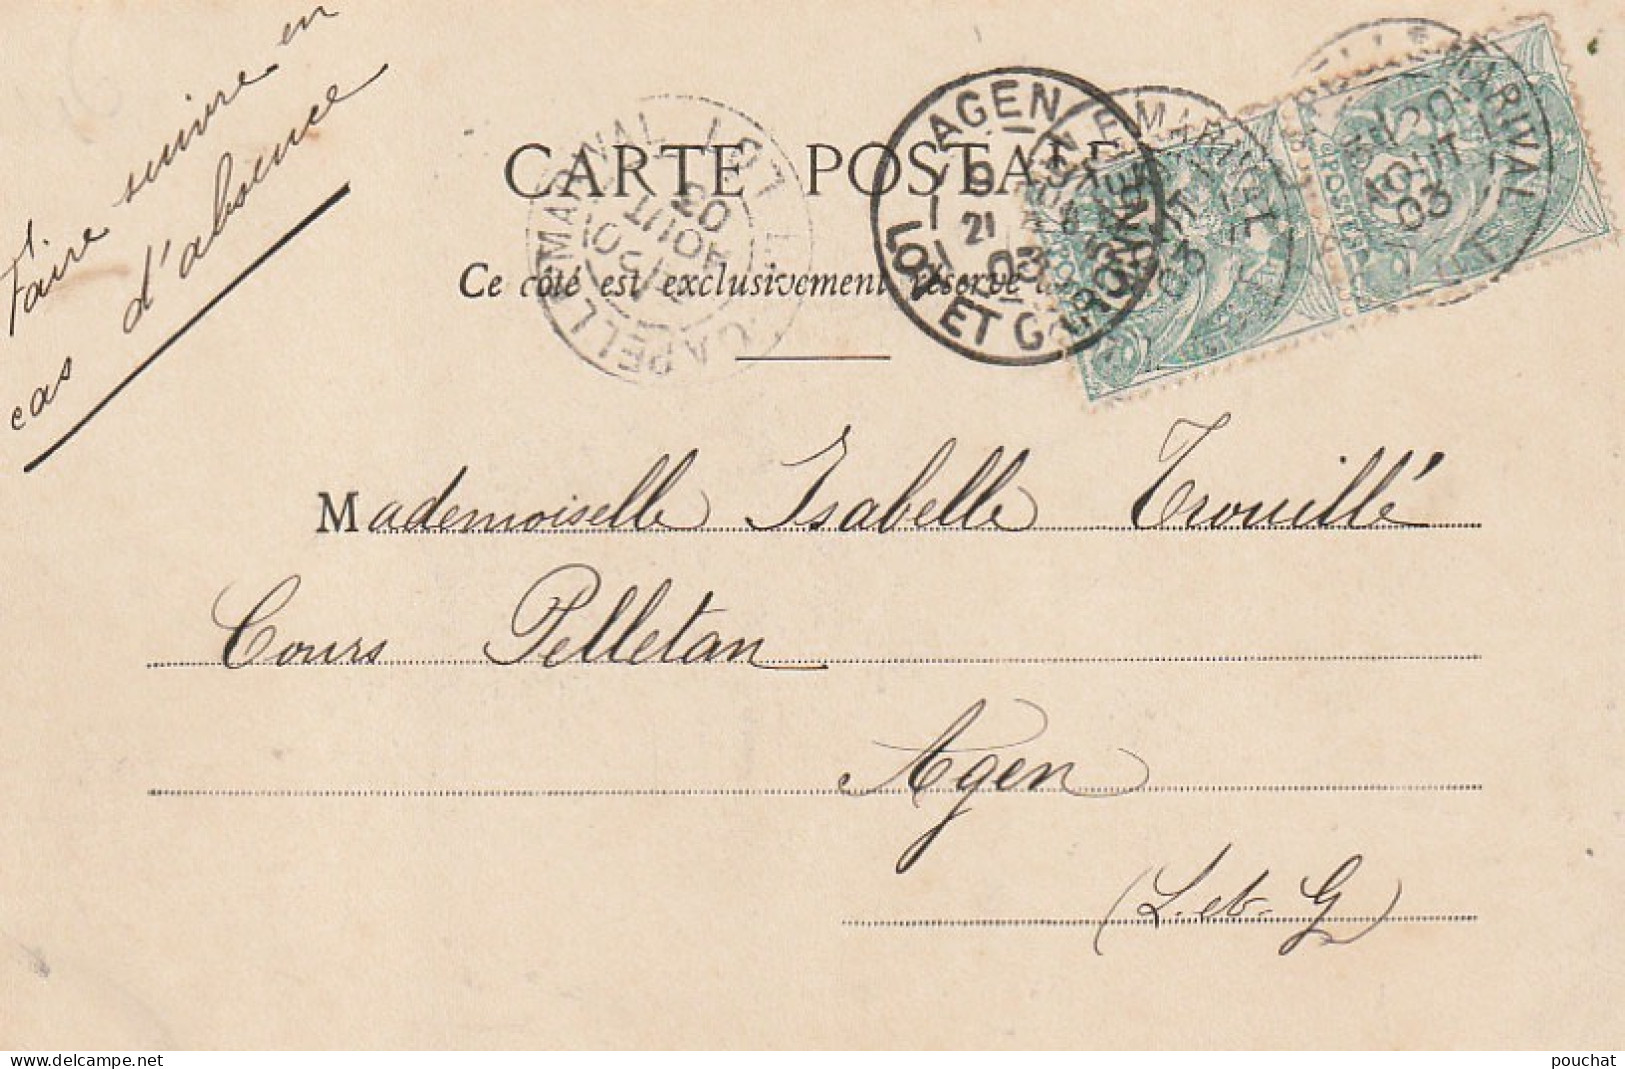 Faire suivre en
cas d'absence
CARTE POSTALE
Ce côté est exclusivement réservé
LACAPELLE-MARIVAL LOT
20
AOUT
03
AGEN
21
03
LOT ET GARONNE
MARIVAL
20
AOUT
03
Mademoiselle Isabelle Trouillé
Cours Pelletan
Agen
(L. et. G)
www.delcampe.net
pouchat